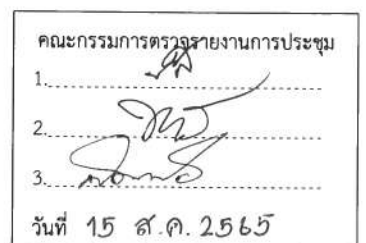 คณะกรรมการตรวจรายงานการประชุม
1.
2.
3.
วันที่ 15 ส.ค. 2565